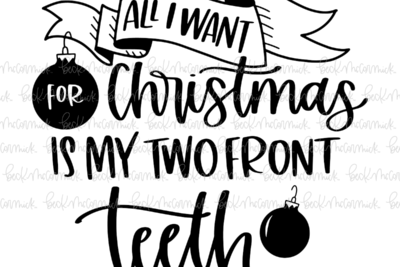 ALL I WANT
FOR Christmas
IS MY TWO FRONT
teeth